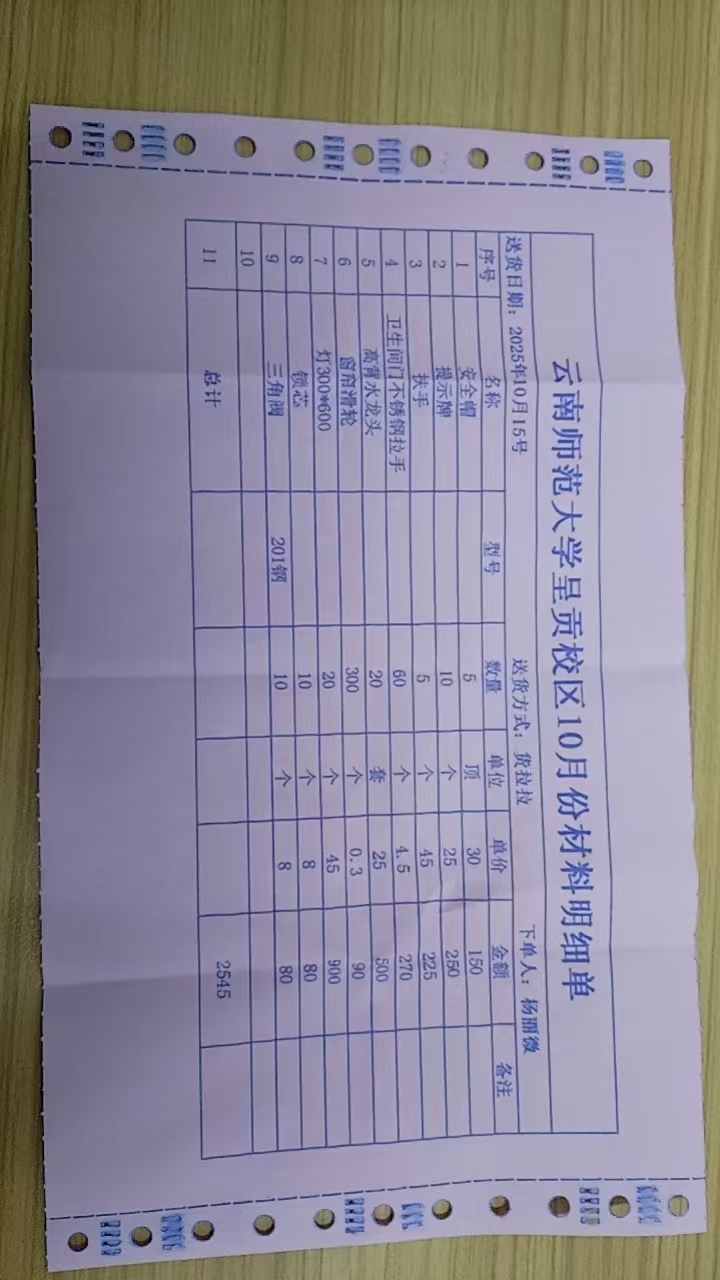 云南师范大学呈贡校区10月份材料明细单
送货日期：2025年10月15号 送货方式：货拉拉 下单人：杨丽微
序号 名称 型号 数量 单位 单价 金额 备注
1 安全帽 5 顶 30 150
2 提示牌 10 个 25 250
3 扶手 5 个 45 225
4 卫生间门不锈钢拉手 60 个 4.5 270
5 高背水龙头 20 套 25 500
6 窗帘滑轮 300 个 0.3 90
7 灯300*600 20 个 45 900
8 锁芯 10 个 8 80
9 三角阀 201钢 10 个 8 80
10
11 总计 2545